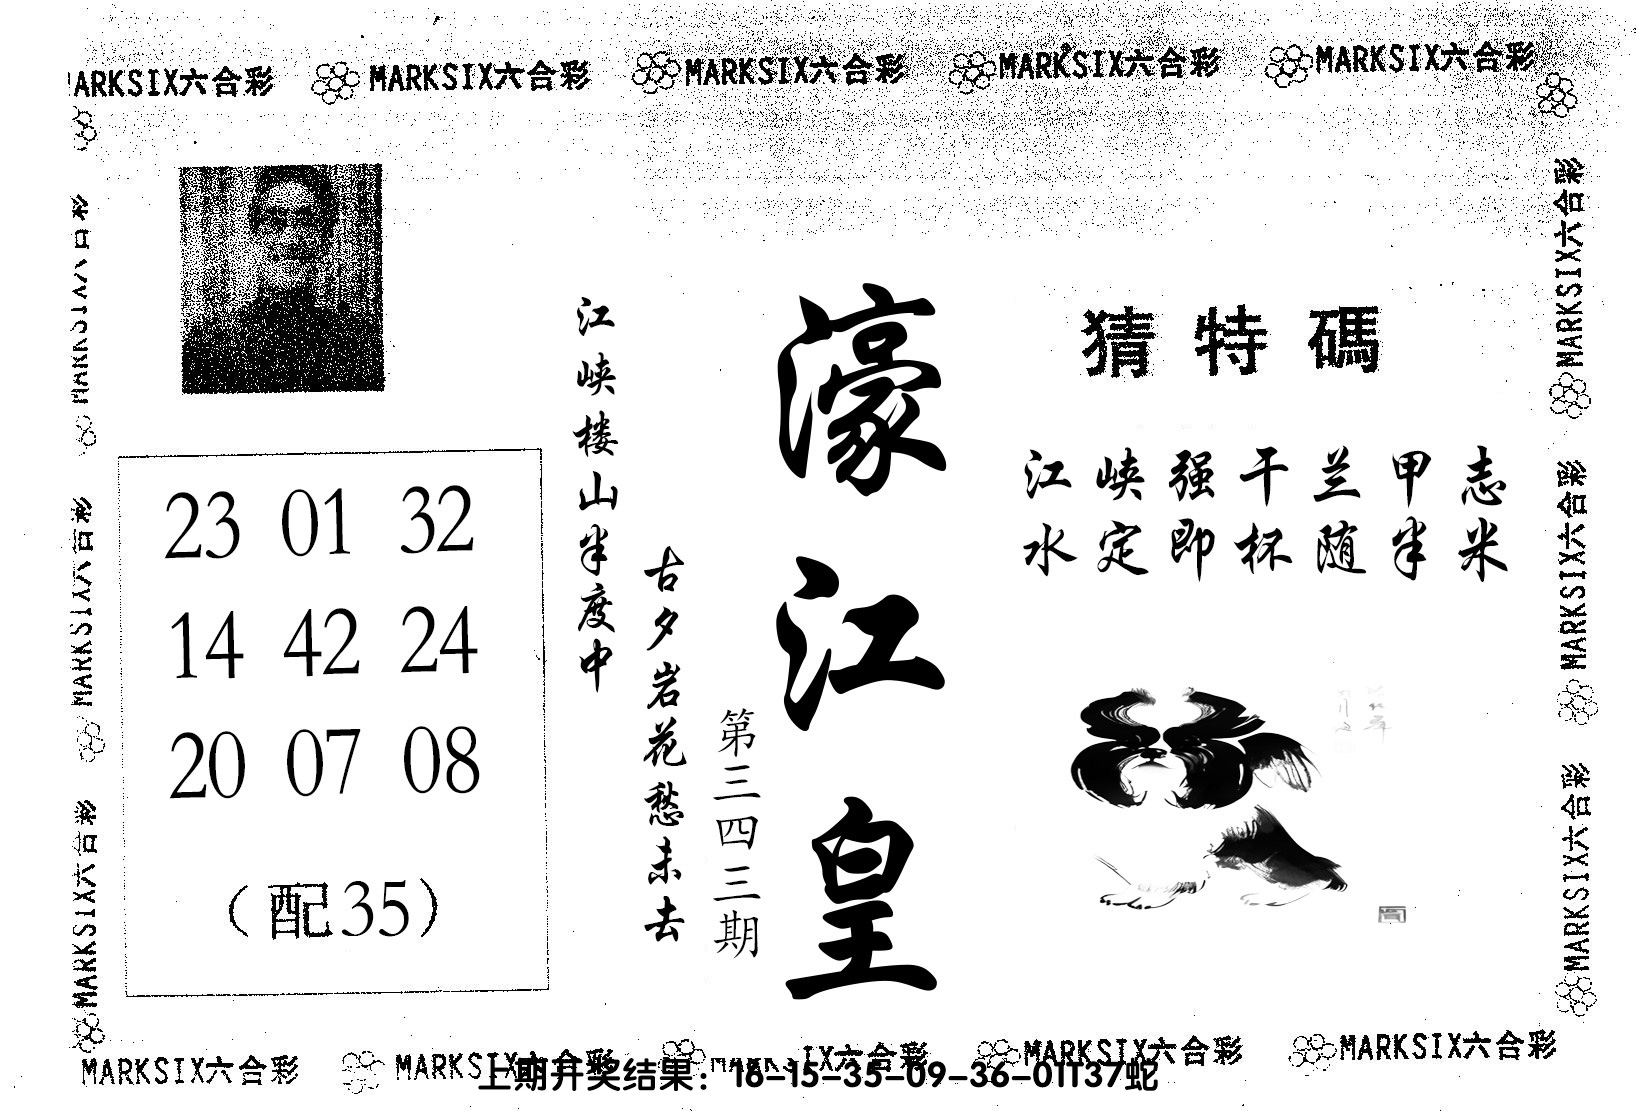 MARKSIX六合彩 MARKSIX六合彩 MARKSIX六合彩 MARKSIX六合彩 MARKSIX六合彩
MARKSIX六合彩
MARKSIX六合彩
MARKSIX六合彩
23 01 32
14 42 24
20 07 08
（配35）
江峡楼山半度中
古夕岩花愁未去
第三四三期
濠江皇
猜特碼
江峡强干兰甲志
水定即杯随半米
MARKSIX六合彩
MARKSIX六合彩
MARKSIX六合彩
MARKSIX六合彩 MARKSIX六合彩 MARKSIX六合彩 MARKSIX六合彩 MARKSIX六合彩
上期开奖结果：18-15-35-09-36-01T37蛇